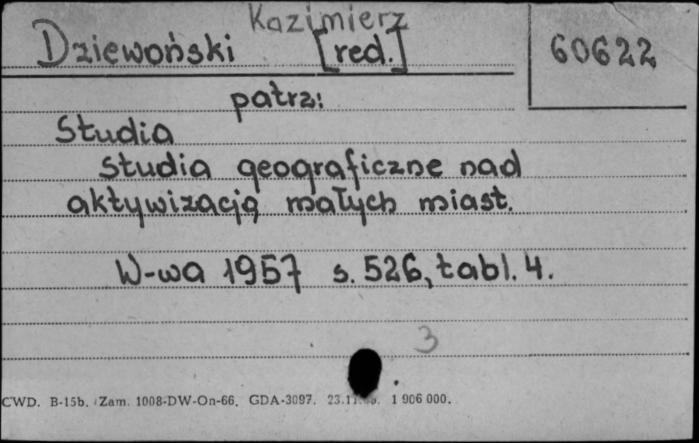 Kazimierz
Dziewoński [red.] 60622
patrz:
Studia
studia geograficzne nad
aktywizacją małych miast.
W-wa 1957 s. 526, tabl. 4.
3
CWD. B-15b. Zam. 1008-DW-On-66. GDA-3097. 1 906 000.